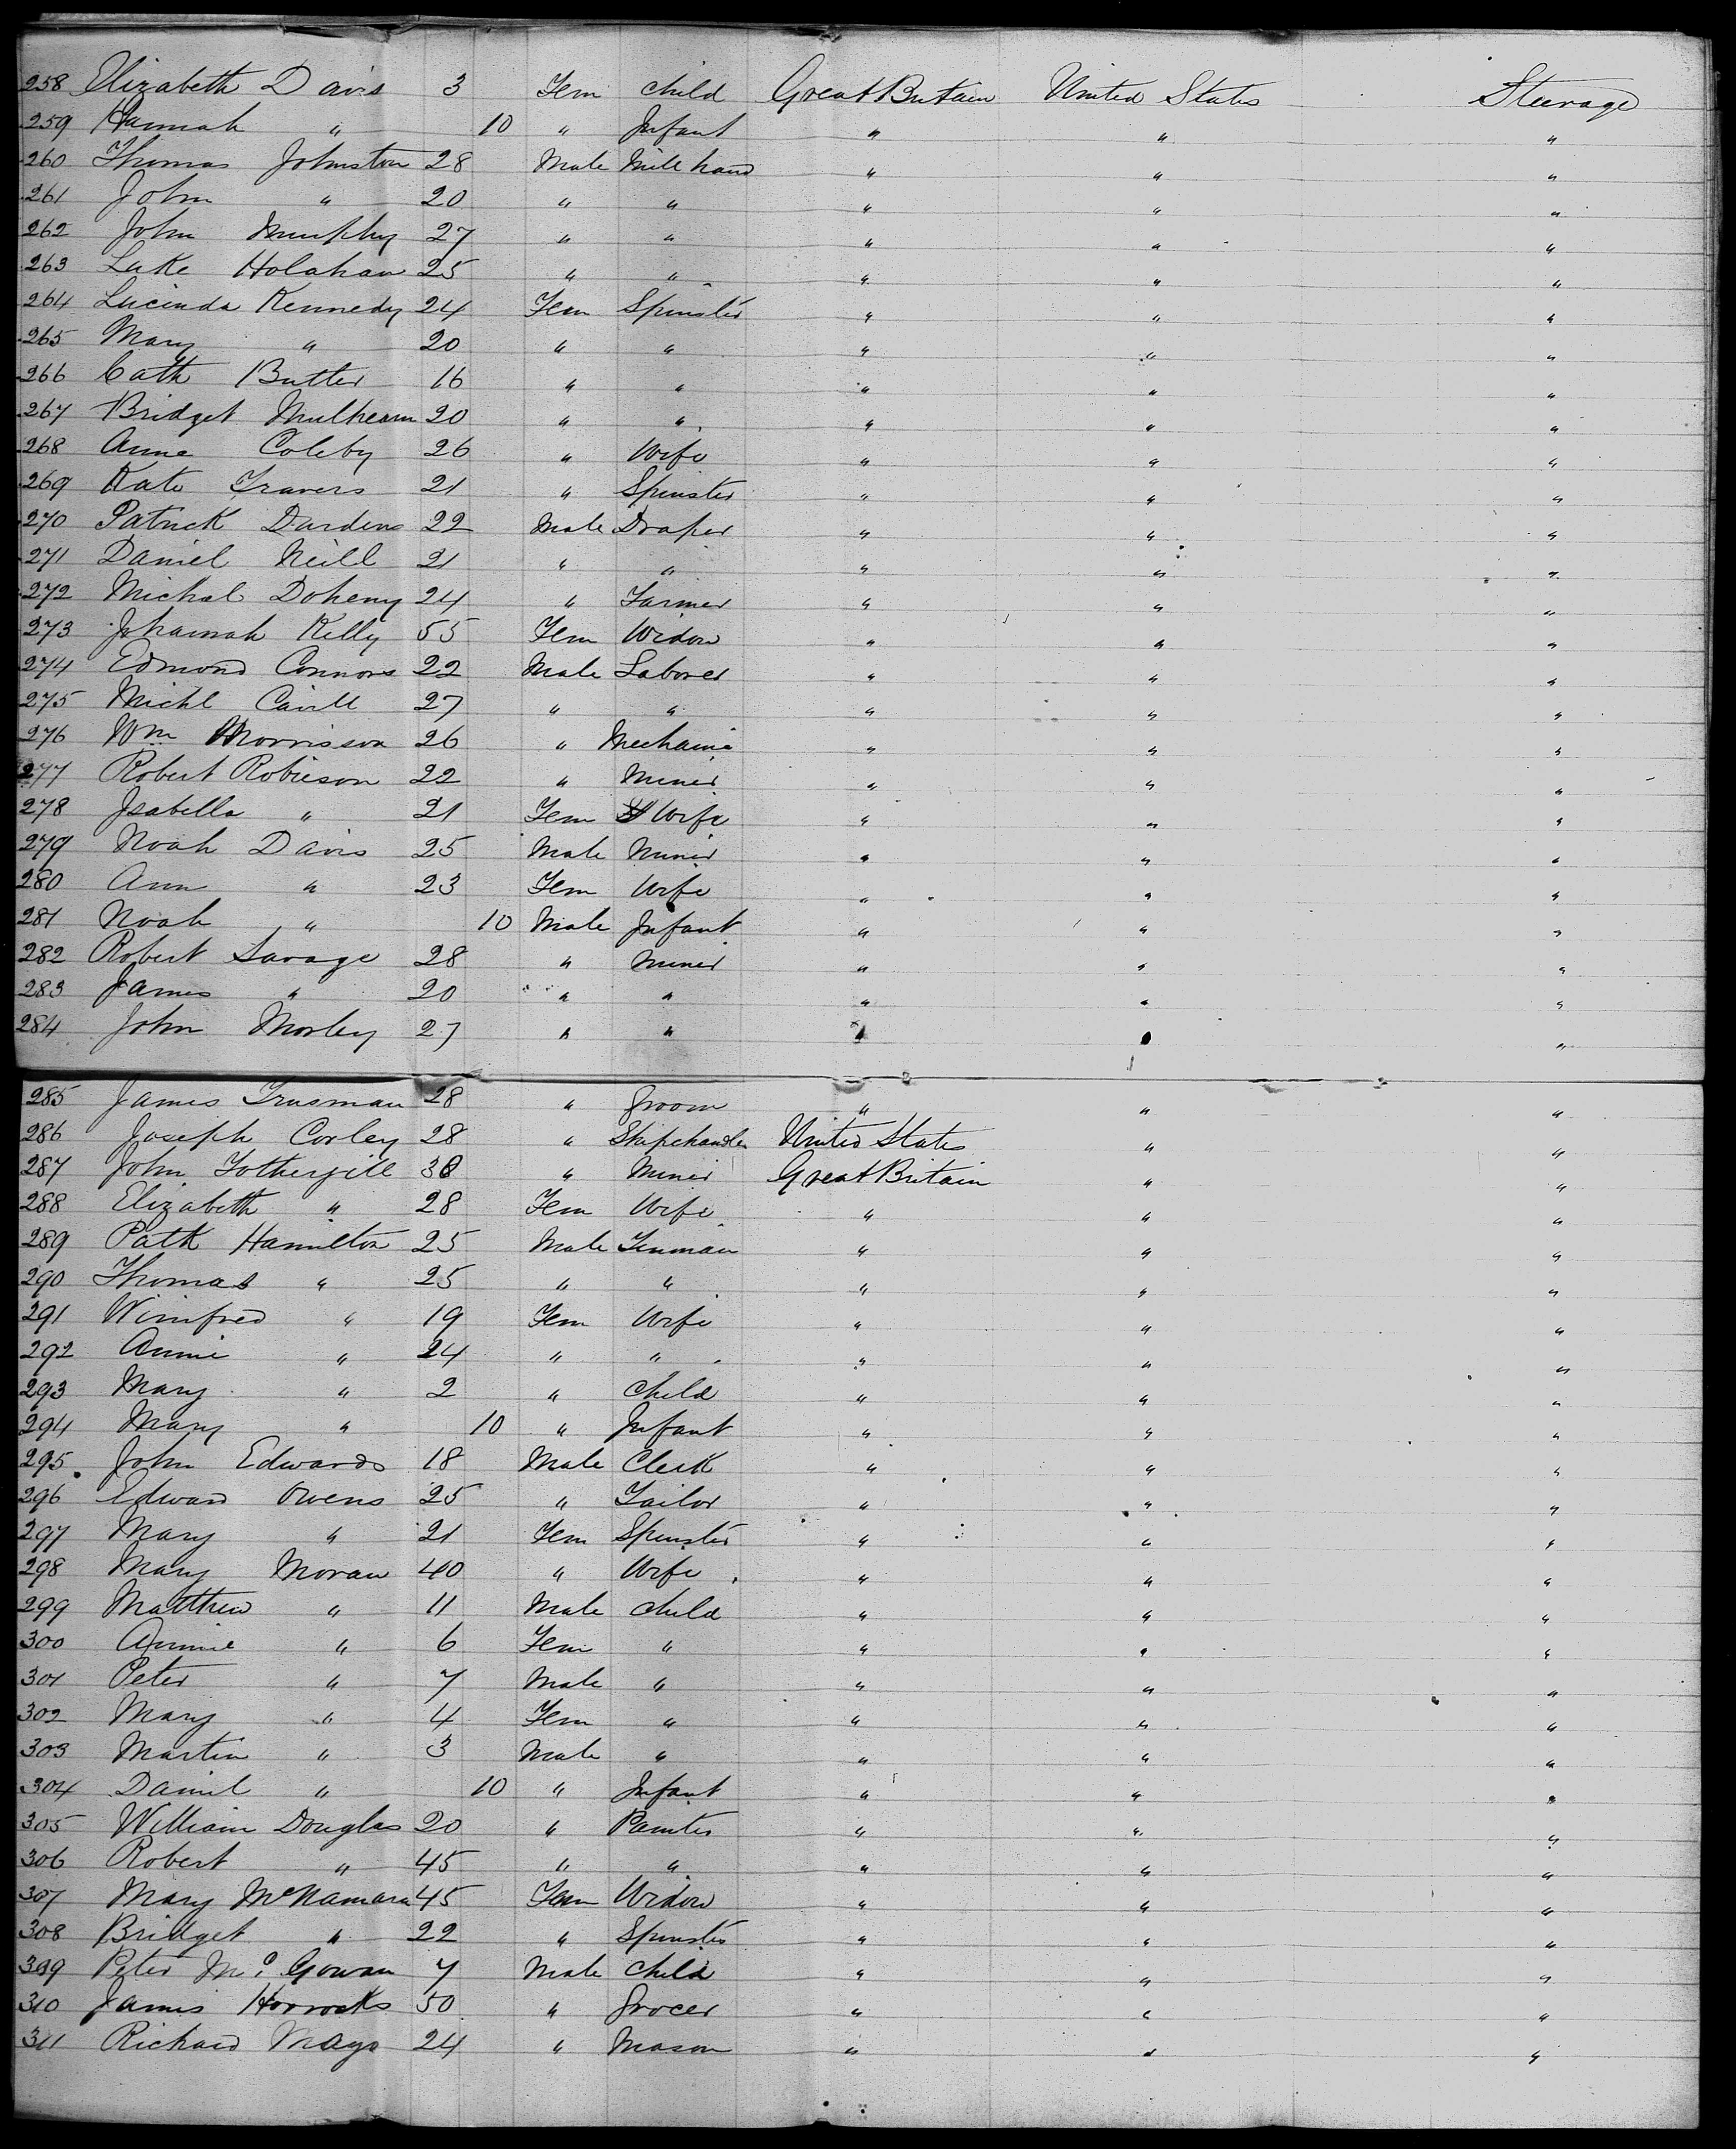 258 Elizabeth Davis 3 Fem child Great Britain United States Steerage
259 Hannah " 10 " Infant " " "
260 Thomas Johnston 28 Male Mill hand " " "
261 John " 20 " " " " "
262 John Murphy 27 " " " " "
263 Luke Holahan 25 " " " " "
264 Lucinda Kennedy 24 Fem Spinster " " "
265 Mary " 20 " " " " "
266 Cath Butler 16 " " " " "
267 Bridget Mulhearn 20 " " " " "
268 Anne Coleby 26 " Wife " " "
269 Kate Travers 21 " Spinster " " "
270 Patrick Durdens 22 Male Draper " " "
271 Daniel Neill 21 " " " " "
272 Michal Doheny 24 " Farmer " " "
273 Johannah Kelly 55 Fem Widow " " "
274 Edmond Connors 22 Male Laborer " " "
275 Michl Cavill 27 " " " " "
276 Wm Morrisson 26 " Mechanic " " "
277 Robert Robieson 22 " Miner " " "
278 Isabella " 21 Fem Wife " " "
279 Noah Davis 25 Male Miner " " "
280 Ann " 23 Fem Wife " " "
281 Noah " 10 Male Infant " " "
282 Robert Savage 28 " Miner " " "
283 James " 20 " " " " "
284 John Morley 27 " " " " "
285 James Trusman 28 " Groom " " "
286 Joseph Corley 28 " Shipchandler United States " "
287 John Fothergill 30 " Miner Great Britain " "
288 Elizabeth " 28 Fem Wife " " "
289 Patk Hamilton 25 Male Tinman " " "
290 Thomas " 25 " " " " "
291 Winifred " 19 Fem Wife " " "
292 Annie " 24 " " " " "
293 Mary " 2 " Child " " "
294 Mary " 10 " Infant " " "
295 John Edwards 18 Male Clerk " " "
296 Edward Owens 25 " Tailor " " "
297 Mary " 21 Fem Spinster " " "
298 Mary Moran 40 " Wife " " "
299 Matthew " 11 Male child " " "
300 Annie " 6 Fem " " " "
301 Peter " 7 Male " " " "
302 Mary " 4 Fem " " " "
303 Martin " 3 Male " " " "
304 Daniel " 10 " Infant " " "
305 William Douglas 20 " Painter " " "
306 Robert " 45 " " " " "
307 Mary McNamara 45 Fem Widow " " "
308 Bridget " 22 " Spinster " " "
309 Peter Mc Gowan 7 Male Child " " "
310 James Horrocks 50 " Grocer " " "
311 Richard Mays 24 " Mason " " "